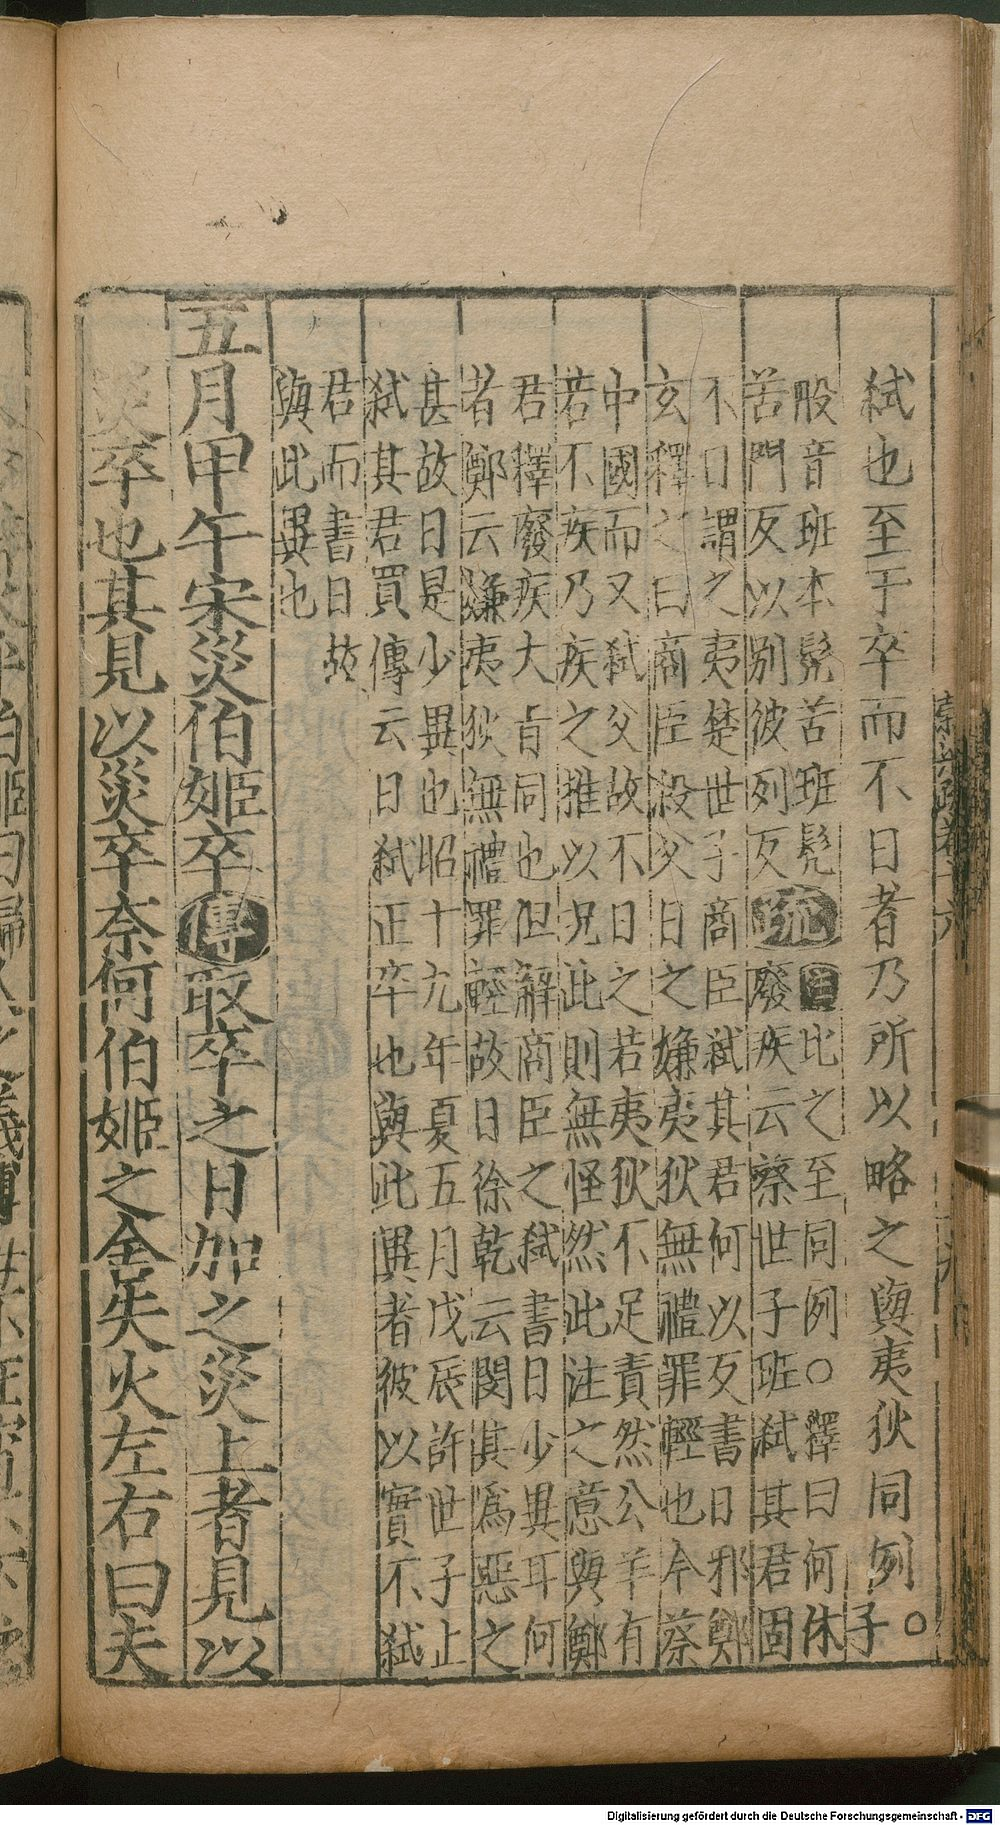 弑也至于卒而不日者乃所以略之與夷狄同例○子
般音班本髠苦班髠
苦門反以別彼列反
疏
注比之至同例○釋曰何休
廢疾云蔡世子班弑其君固
不日謂之夷楚世子商臣弑其君何以反書日邪鄭
玄釋之曰商臣殺父日之嫌夷狄無禮罪輕也今蔡
中國而又弑父故不日之若夷狄不足責然公羊有
若不疾乃疾之推以況此則無怪然此注之意與鄭
君釋廢疾大旨同也但解商臣之弑書日少異耳何
者鄭云嫌夷狄無禮罪輕故日徐乾云閔其爲惡之
甚故日是少異也昭十九年夏五月戊辰許世子止
弑其君買傳云日弑正卒也與此異者彼以實不弑
君而書日故
與此異也
五月甲午宋災伯姬卒傳取卒之日加之災上者見以
災卒也其見以災卒奈何伯姬之舍失火左右曰夫
Digitalisierung gefördert durch die Deutsche Forschungsgemeinschaft - DFG